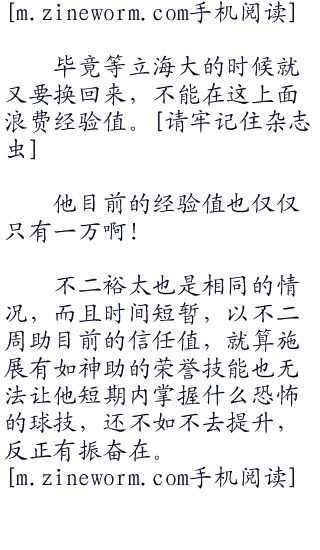 [m.zineworm.com手机阅读]
毕竟等立海大的时候就
又要换回来，不能在这上面
浪费经验值。[请牢记住杂志
虫]
他目前的经验值也仅仅
只有一万啊！
不二裕太也是相同的情
况，而且时间短暂，以不二
周助目前的信任值，就算施
展有如神助的荣誉技能也无
法让他短期内掌握什么恐怖
的球技，还不如不去提升，
反正有振奋在。
[m.zineworm.com手机阅读]